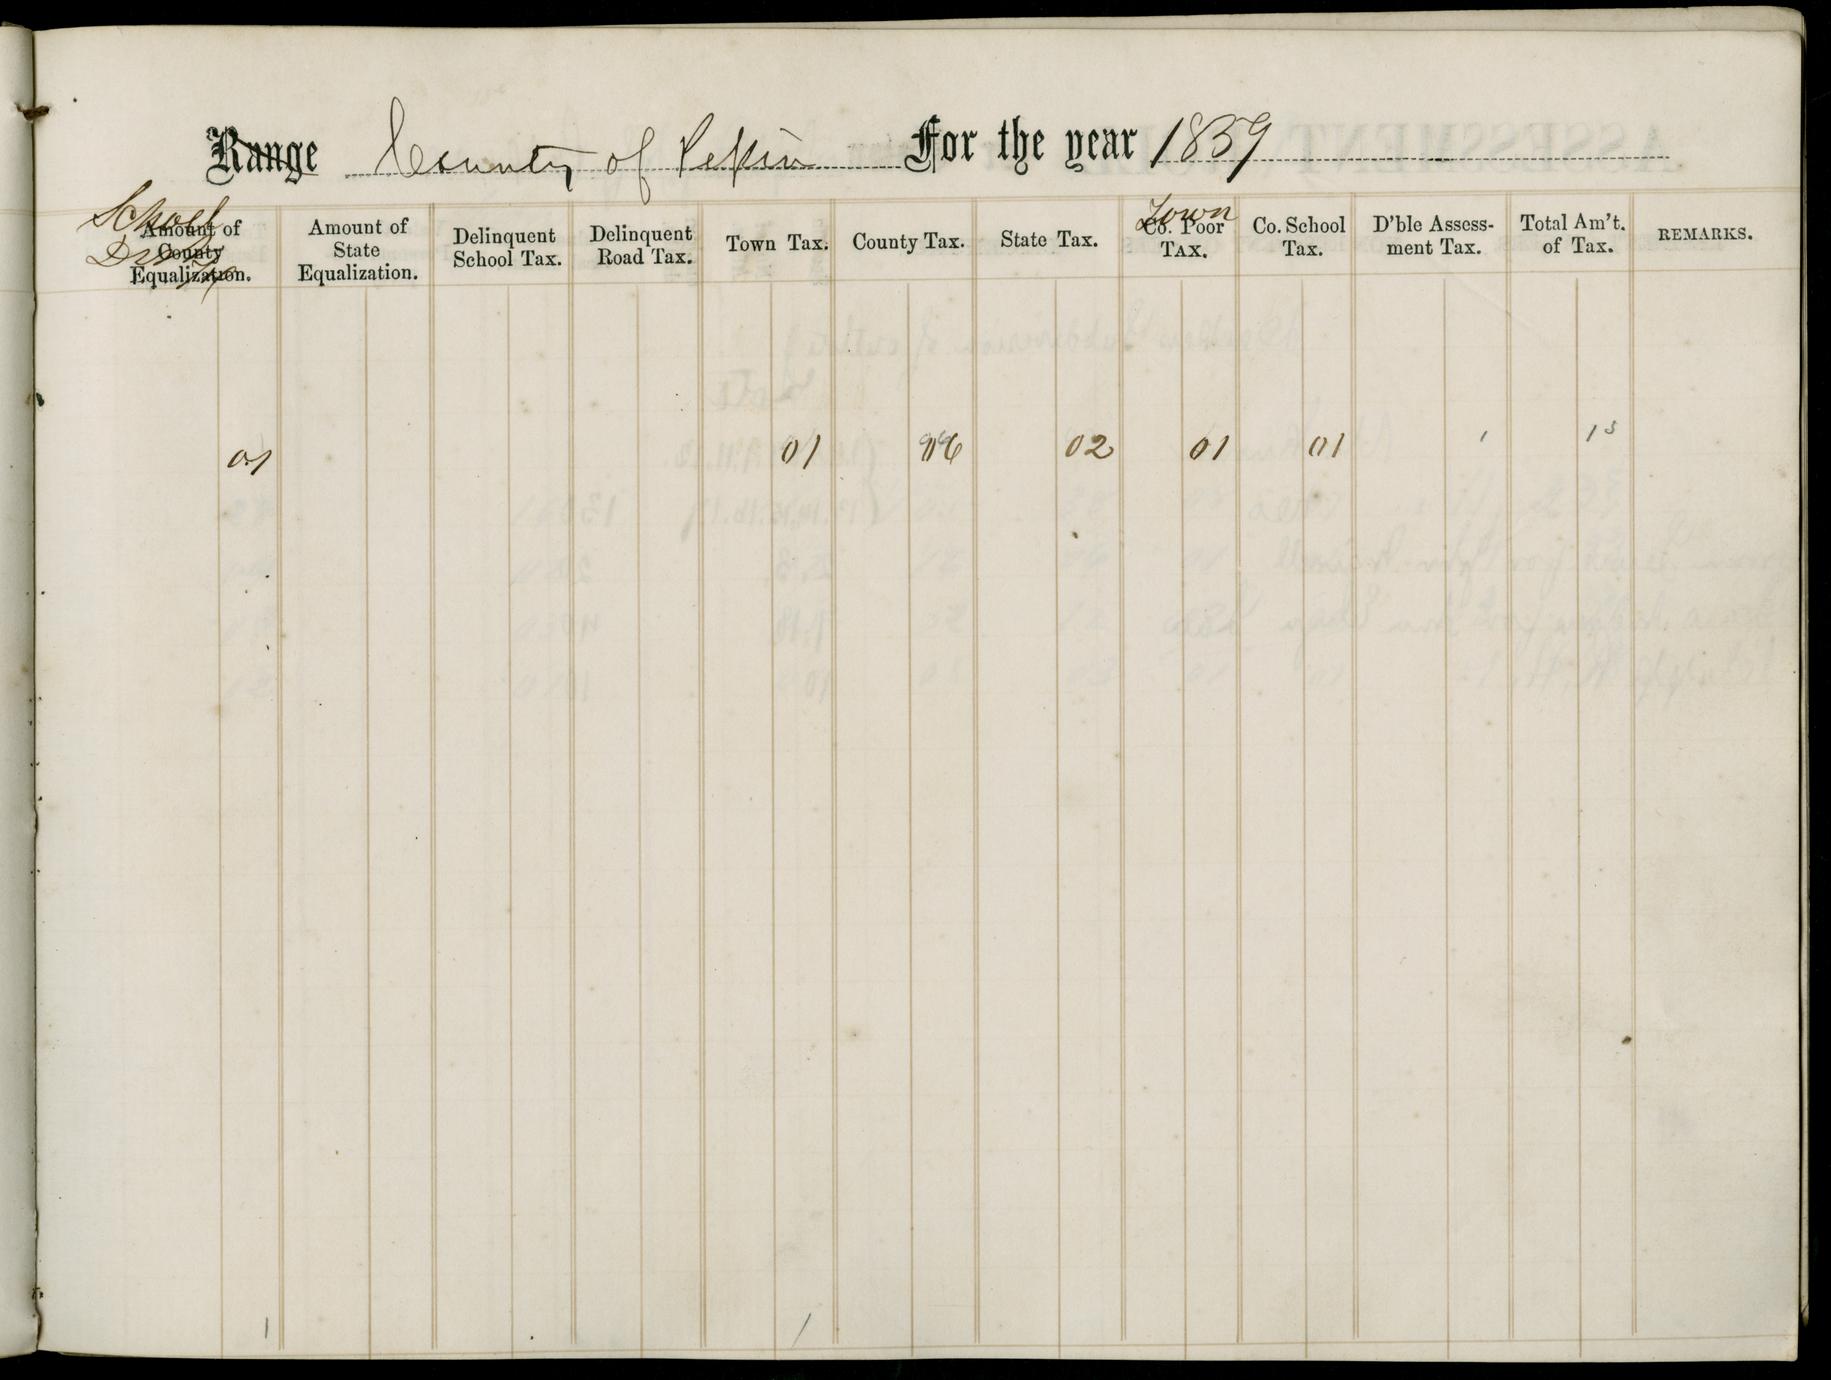 Range County of Pepin For the year 1859
School
Amount of County Equalization.
Amount of State Equalization.
Delinquent School Tax.
Delinquent Road Tax.
Town Tax.
County Tax.
State Tax.
Town
Co. Poor TAX.
Co. School Tax.
D'ble Assess- ment Tax.
Total Am't. of Tax.
REMARKS.
01 01 06 02 01 01 1